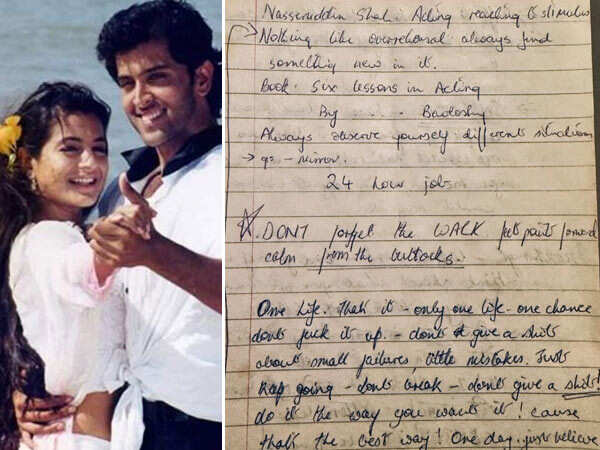 Nasseruddin Shah. Acting reacting to stimulus
→ Nothing like overrehearsal always find
something new in it.
Book: Six lessons in Acting
By . . .
Always observe yourself different situations
→ - mirror.
24 hour job
☆. DONT forget the WALK feet point forward
calm from the buttocks.
One Life. That it - only one life - one chance
dont fuck it up. - dont give a shit
about small failures, little mistakes. Just
Kep going - dont break - dont give a shit!
do it the way you want it! cause
that the best way! One day.. just believe